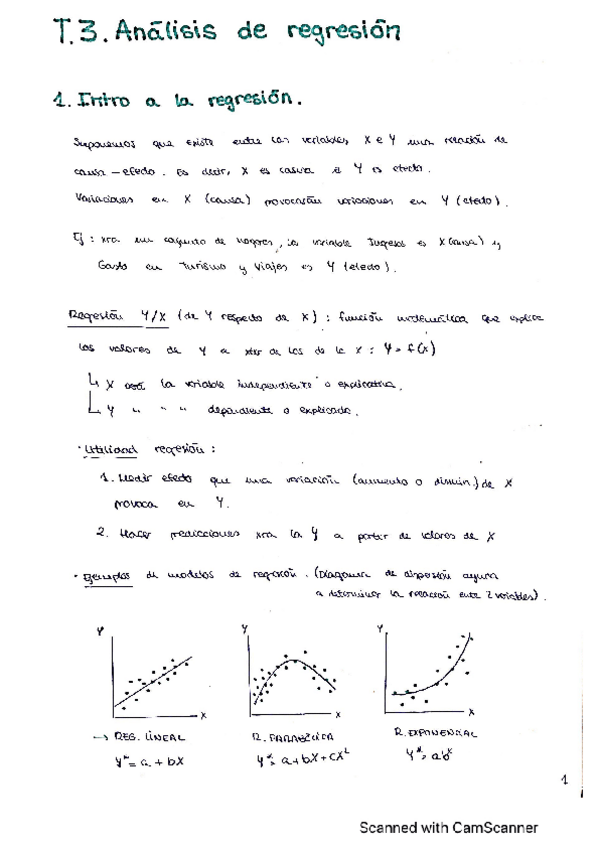 T.3. Análisis de regresión
1. Intro a la regresión.
Suponemos que existe entre las variables, X e Y una relación de
causa-efecto. Es decir, X es causa e Y es efecto.
Variaciones en X (causa) provocarán variaciones en Y (efecto).
Ej: xra un conjunto de hogares, la variable Ingresos es X (causa) y
Gasto en Turismo y Viajes es Y (efecto).
Regresión Y/X (de Y respecto de X): función matemática que explica
los valores de Y a xtir de los de la X: Y = f(x)
↳ X será la variable independiente o explicativa.
↳ Y " " " dependiente o explicada.
· Utilidad regresión:
1. Medir efecto que una variación (aumento o dismin.) de X
provoca en Y.
2. Hacer predicciones xra la Y a partir de valores de X
· Ejemplos de modelos de regresión. (Diagrama de dispersión ayuda
a determinar la relación entre 2 variables).
Y Y Y
X X X
→ REG. LINEAL R. PARABÓLICA R. EXPONENCIAL
Y* = a + bX Y* = a + bX + cX² Y* = abˣ
1
Scanned with CamScanner